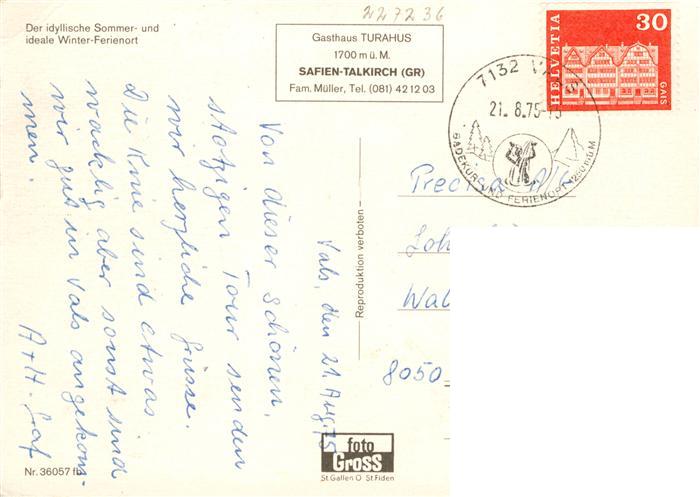 227236
Der idyllische Sommer- und
ideale Winter-Ferienort
Gasthaus TURAHUS
1700 m ü. M.
SAFIEN-TALKIRCH (GR)
Fam. Müller, Tel. (081) 42 12 03
HELVETIA
30
GAIS
7132 VALS
21. 8.75-
BADEKUR UND FERIENORT 1250 m ü M
Vals, den 21. Aug. 75
Von dieser schönen,
stotzigen Tour senden
wir herzliche Grüsse.
Die Knie sind etwas
wacklig aber sonst sind
wir gut in Vals angekom-
men.
A+H. Graf
Reproduktion verboten
Precisa AG
Wal
8050
foto
Gross
St. Gallen O St. Fiden
Nr. 36057 fb